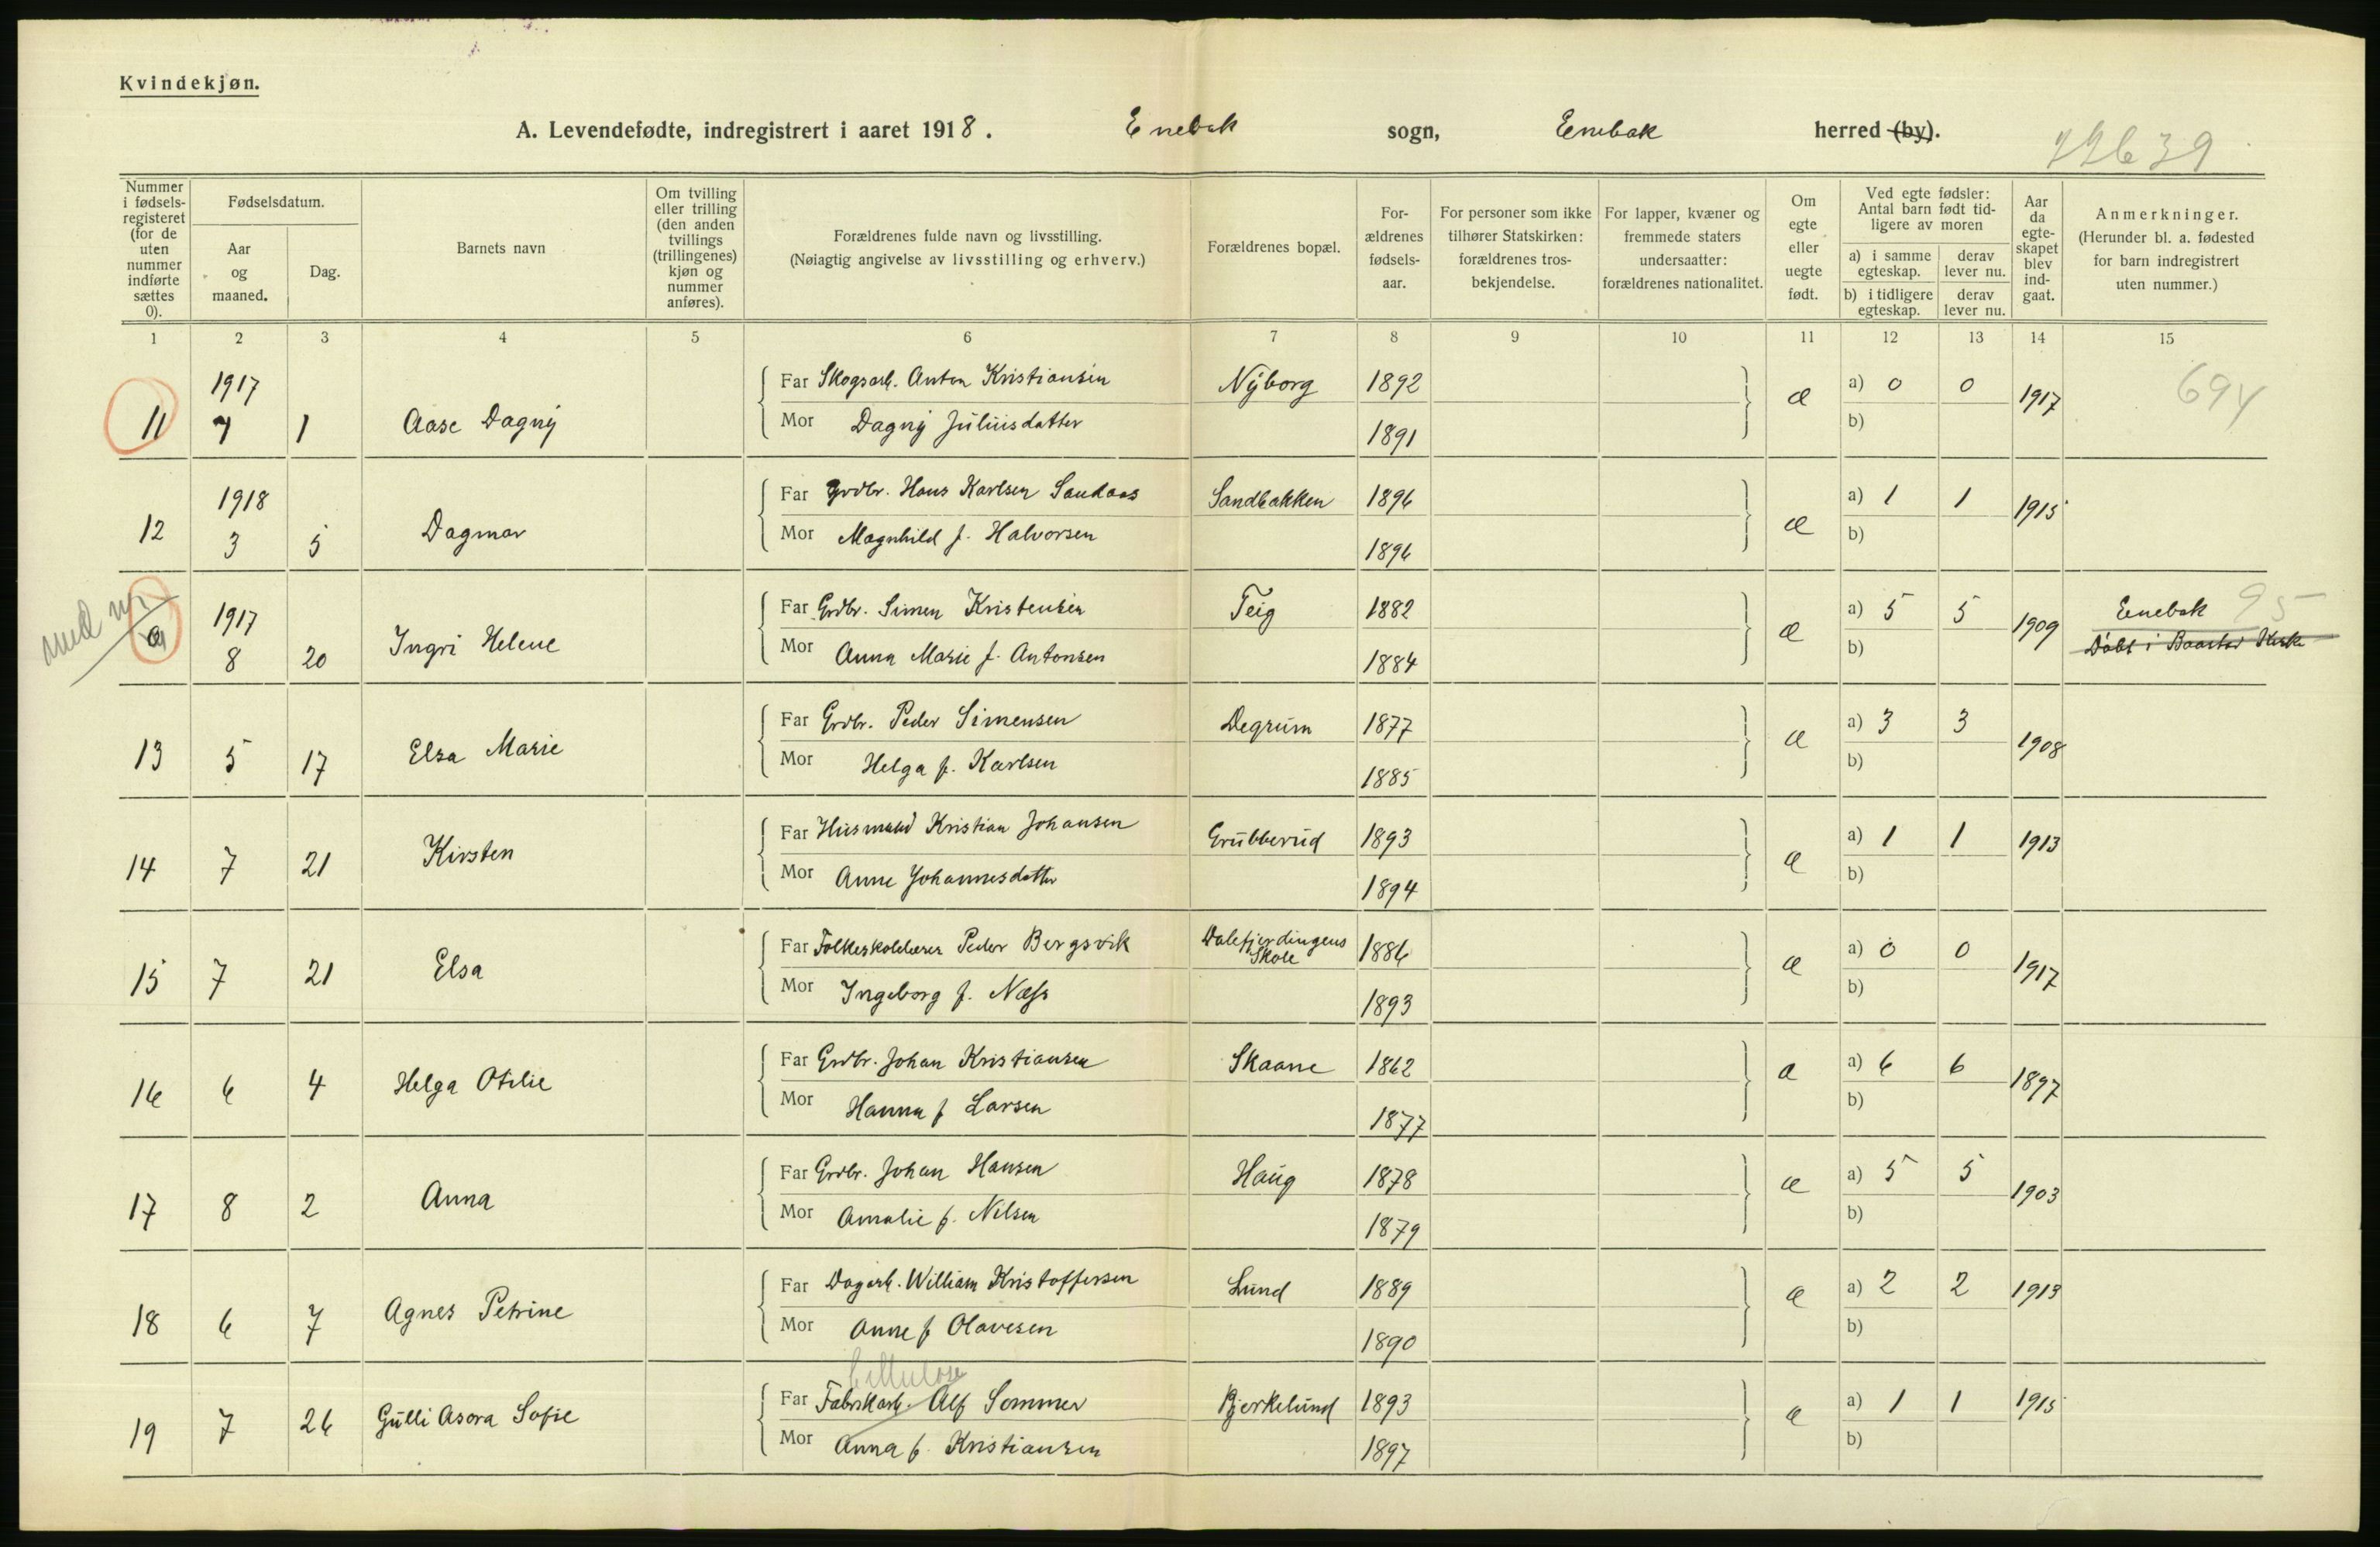 Kvindekjøn.
A. Levendefødte, indregistrert i aaret 1918. Enebak sogn, Enebak herred (by).
Nummer i fødsels-registeret (for de uten nummer indførte sættes 0).
Fødselsdatum.
Aar og maaned.
Dag.
Barnets navn
Om tvilling eller trilling (den anden tvillings (trillingenes) kjøn og nummer anføres).
Forældrenes fulde navn og livsstilling.
(Nøiagtig angivelse av livsstilling og erhverv.)
Forældrenes bopæl.
For-ældrenes fødsels-aar.
For personer som ikke tilhører Statskirken: forældrenes tros-bekjendelse.
For lapper, kvæner og fremmede staters undersaatter: forældrenes nationalitet.
Om egte eller uegte født.
Ved egte fødsler: Antal barn født tid-ligere av moren
a) i samme egteskap.
derav lever nu.
b) i tidligere egteskap.
derav lever nu.
Aar da egte-skapet blev ind-gaat.
Anmerkninger.
(Herunder bl. a. fødested for barn indregistrert uten nummer.)
1 2 3 4 5 6 7 8 9 10 11 12 13 14 15
1917
Far Skogsarb. Anton Kristiansen Nyborg 1892 a) 0 0 1917 694
11 1 Aase Dagny æ
Mor Dagny Juliusdatter 1891 b)
1918
Far Grdbr. Hans Karlsen Sandaas Sandbakken 1896 a) 1 1 1915
12 3 5 Dagmar æ
Mor Magnhild f. Halvorsen 1896 b)
1917
Far Grdbr. Simen Kristensen Teig 1882 a) 5 5 1909 Enebak 95
8 20 Ingri Helene æ
Mor Anna Marie f. Antonsen 1884 b) Døbt i Baastad Kirke
Far Grdbr. Peder Simensen Degrum 1877 a) 3 3 1908
13 5 17 Elsa Marie æ
Mor Helga f. Karlsen 1885 b)
Far Husmand Kristian Johansen Grubberud 1893 a) 1 1 1913
14 7 21 Kirsten æ
Mor Anne Johannesdatter 1894 b)
Far Folkeskolelærer Peder Bergsvik Dalefjerdingens Skole 1886 a) 0 0 1917
15 7 21 Elsa æ
Mor Ingeborg f. Næss 1893 b)
Far Grdbr. Johan Kristiansen Skaane 1862 a) 6 6 1897
16 6 4 Helga Otilie æ
Mor Hanna f Larsen 1877 b)
Far Grdbr. Johan Hansen Haug 1878 a) 5 5 1903
17 8 2 Anna æ
Mor Amalie f. Nilsen 1879 b)
Far Dagarb. William Kristoffersen Lund 1889 a) 2 2 1913
18 6 7 Agnes Petrine æ
Mor Anne f Olavesen 1890 b)
Cellulose
Far Fabrikarb. Alf Sommer Bjerkelund 1893 a) 1 1 1915
19 7 26 Gulli Asora Sofie æ
Mor Anna f. Kristiansen 1897 b)